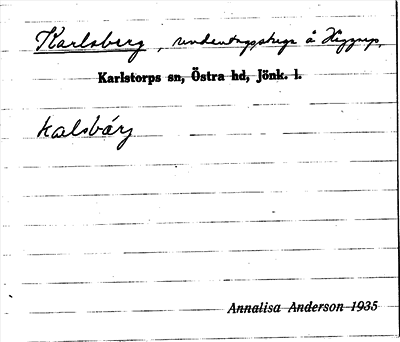 Karlsberg, undantagsstuga å Hyggnap,
Karlstorps sn, Östra hd, Jönk. l.
kalsbárj
Annalisa Anderson 1935